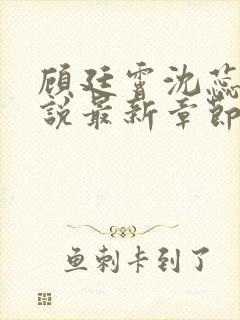 顾廷霄沈蕊
说最新章节
鱼刺卡到了